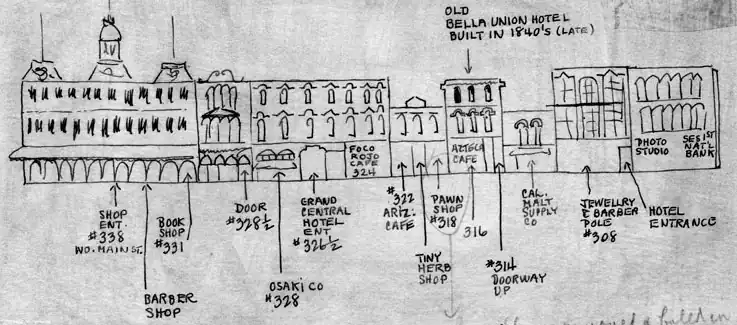 OLD
BELLA UNION HOTEL
BUILT IN 1840'S (LATE)
FOCO
ROJO
CAFE
324
AZTECA
CAFE
PHOTO
STUDIO
SES 1ST
NAT'L
BANK
SHOP
ENT.
#338
NO. MAIN ST.
BARBER
SHOP
BOOK
SHOP
#331
DOOR
#328½
OSAKI CO
#328
GRAND
CENTRAL
HOTEL
ENT.
#326½
#322
ARIZ.
CAFE
TINY
HERB
SHOP
PAWN
SHOP
#318
316
#314
DOORWAY
UP
CAL.
MALT
SUPPLY
CO
JEWELLRY
& BARBER
POLE
#308
HOTEL
ENTRANCE